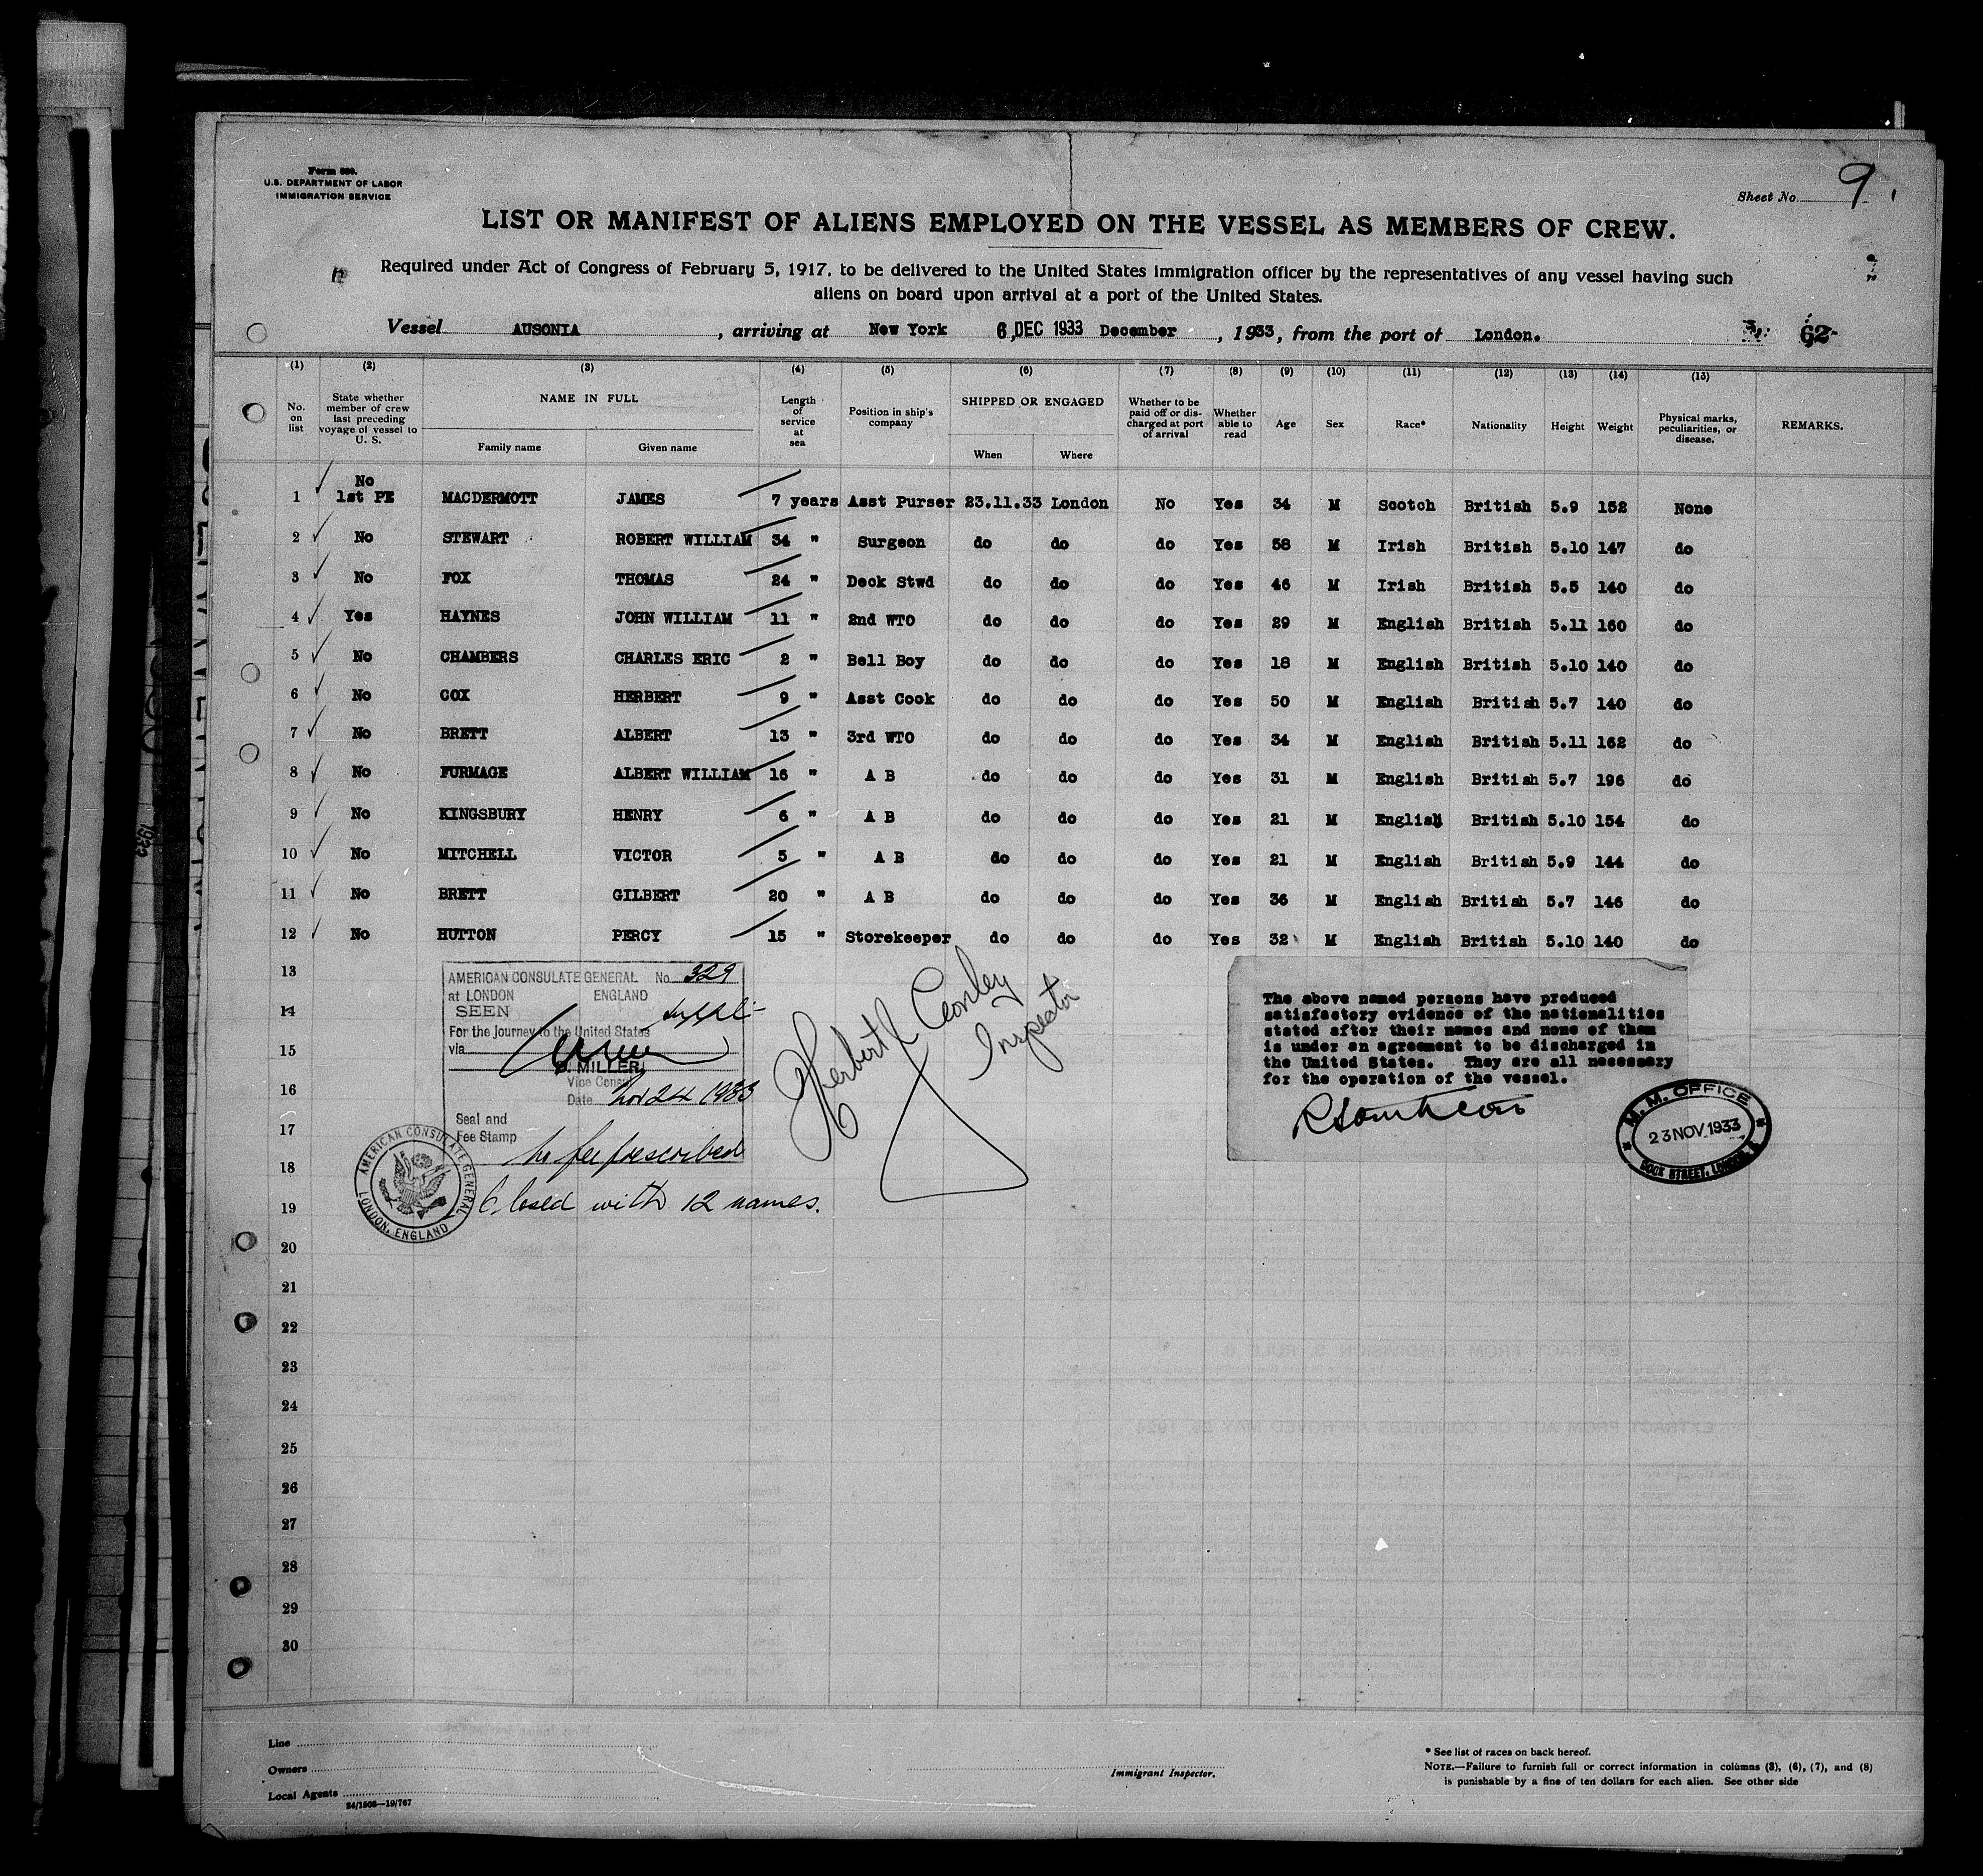 Form 686.
U.S. DEPARTMENT OF LABOR
IMMIGRATION SERVICE
Sheet No. 9
LIST OR MANIFEST OF ALIENS EMPLOYED ON THE VESSEL AS MEMBERS OF CREW.
Required under Act of Congress of February 5, 1917, to be delivered to the United States immigration officer by the representatives of any vessel having such
aliens on board upon arrival at a port of the United States.
Vessel AUSONIA, arriving at New York 6 DEC 1933 December, 1933, from the port of London. 62
(1) (2) (3) (4) (5) (6) (7) (8) (9) (10) (11) (12) (13) (14) (15)
No. on list
State whether member of crew last preceding voyage of vessel to U. S.
NAME IN FULL
Family name Given name
Length of service at sea
Position in ship's company
SHIPPED OR ENGAGED
When Where
Whether to be paid off or discharged at port of arrival
Whether able to read
Age
Sex
Race*
Nationality
Height
Weight
Physical marks, peculiarities, or disease.
REMARKS.
1 No 1st PE MACDERMOTT JAMES 7 years Asst Purser 23.11.33 London No Yes 34 M Scotch British 5.9 152 None
2 No STEWART ROBERT WILLIAM 34 " Surgeon do do do Yes 58 M Irish British 5.10 147 do
3 No FOX THOMAS 24 " Deck Stwd do do do Yes 46 M Irish British 5.5 140 do
4 Yes HAYNES JOHN WILLIAM 11 " 2nd WTO do do do Yes 29 M English British 5.11 160 do
5 No CHAMBERS CHARLES ERIC 2 " Bell Boy do do do Yes 18 M English British 5.10 140 do
6 No COX HERBERT 9 " Asst Cook do do do Yes 50 M English British 5.7 140 do
7 No BRETT ALBERT 13 " 3rd WTO do do do Yes 34 M English British 5.11 162 do
8 No FURMAGE ALBERT WILLIAM 16 " A B do do do Yes 31 M English British 5.7 196 do
9 No KINGSBURY HENRY 6 " A B do do do Yes 21 M English British 5.10 154 do
10 No MITCHELL VICTOR 5 " A B do do do Yes 21 M English British 5.9 144 do
11 No BRETT GILBERT 20 " A B do do do Yes 36 M English British 5.7 146 do
12 No HUTTON PERCY 15 " Storekeeper do do do Yes 32 M English British 5.10 140 do
13
14
15
16
17
18
19
20
21
22
23
24
25
26
27
28
29
30
AMERICAN CONSULATE GENERAL No. 329
at LONDON ENGLAND
SEEN
For the journey to the United States
via
MILLER
Vice Consul
Date Nov 24 1933
Seal and
Fee Stamp
no fee prescribed
AMERICAN CONSULATE GENERAL
LONDON, ENGLAND
Closed with 12 names.
Herbert Conley
Inspector
The above named persons have produced
satisfactory evidence of the nationalities
stated after their names and none of them
is under an agreement to be discharged in
the United States. They are all necessary
for the operation of the vessel.
M. M. OFFICE
23 NOV 1933
DOCK STREET, LONDON, E
Line
Owners
Local Agents
24/1508—19/767
Immigrant Inspector.
* See list of races on back hereof.
NOTE.—Failure to furnish full or correct information in columns (3), (6), (7), and (8)
is punishable by a fine of ten dollars for each alien. See other side